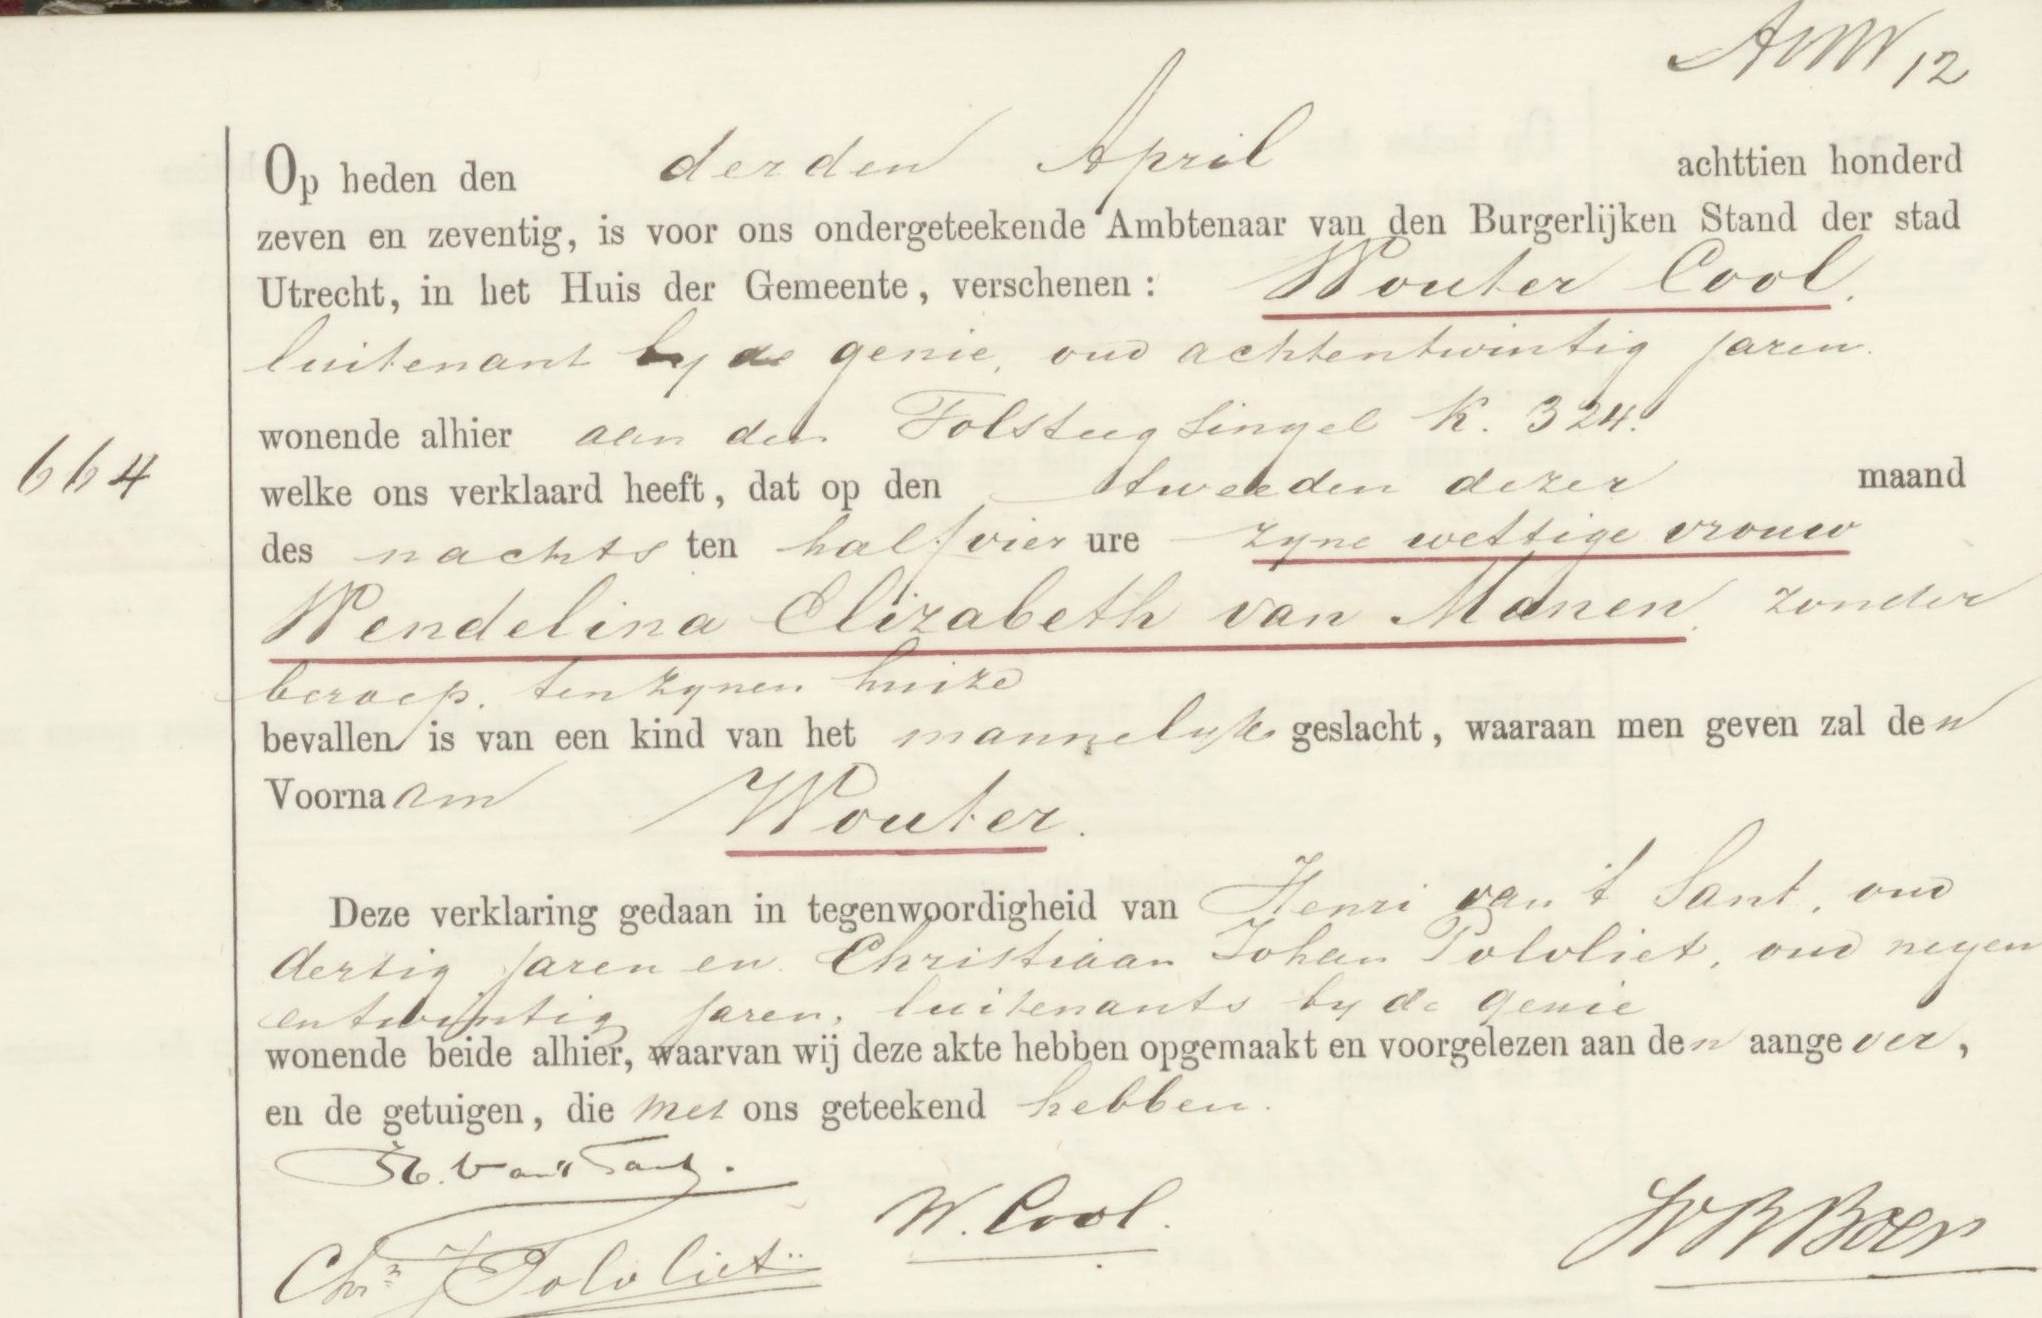 12
Op heden den derden April achttien honderd
zeven en zeventig, is voor ons ondergeteekende Ambtenaar van den Burgerlijken Stand der stad
Utrecht, in het Huis der Gemeente, verschenen: Wouter Cool,
luitenant by de genie, oud achtentwintig jaren
wonende alhier aan den Tolsteegsingel K. 324.
664
welke ons verklaard heeft, dat op den tweeden dezer maand
des nachts ten half vier ure zyne wettige vrouw
Wendelina Elizabeth van Manen, zonder
beroep, ten zynen huize
bevallen is van een kind van het mannelyk geslacht, waaraan men geven zal den
Voornaam Wouter.
Deze verklaring gedaan in tegenwoordigheid van Henri van 't Sant, oud
dertig jaren en Christiaan Johan Polvliet, oud negen
entwintig jaren, luitenants by de genie
wonende beide alhier, waarvan wij deze akte hebben opgemaakt en voorgelezen aan den aangever,
en de getuigen, die met ons geteekend hebben.
H. van 't Sant.
W. Cool.
Chr. J. Polvliet
Boer